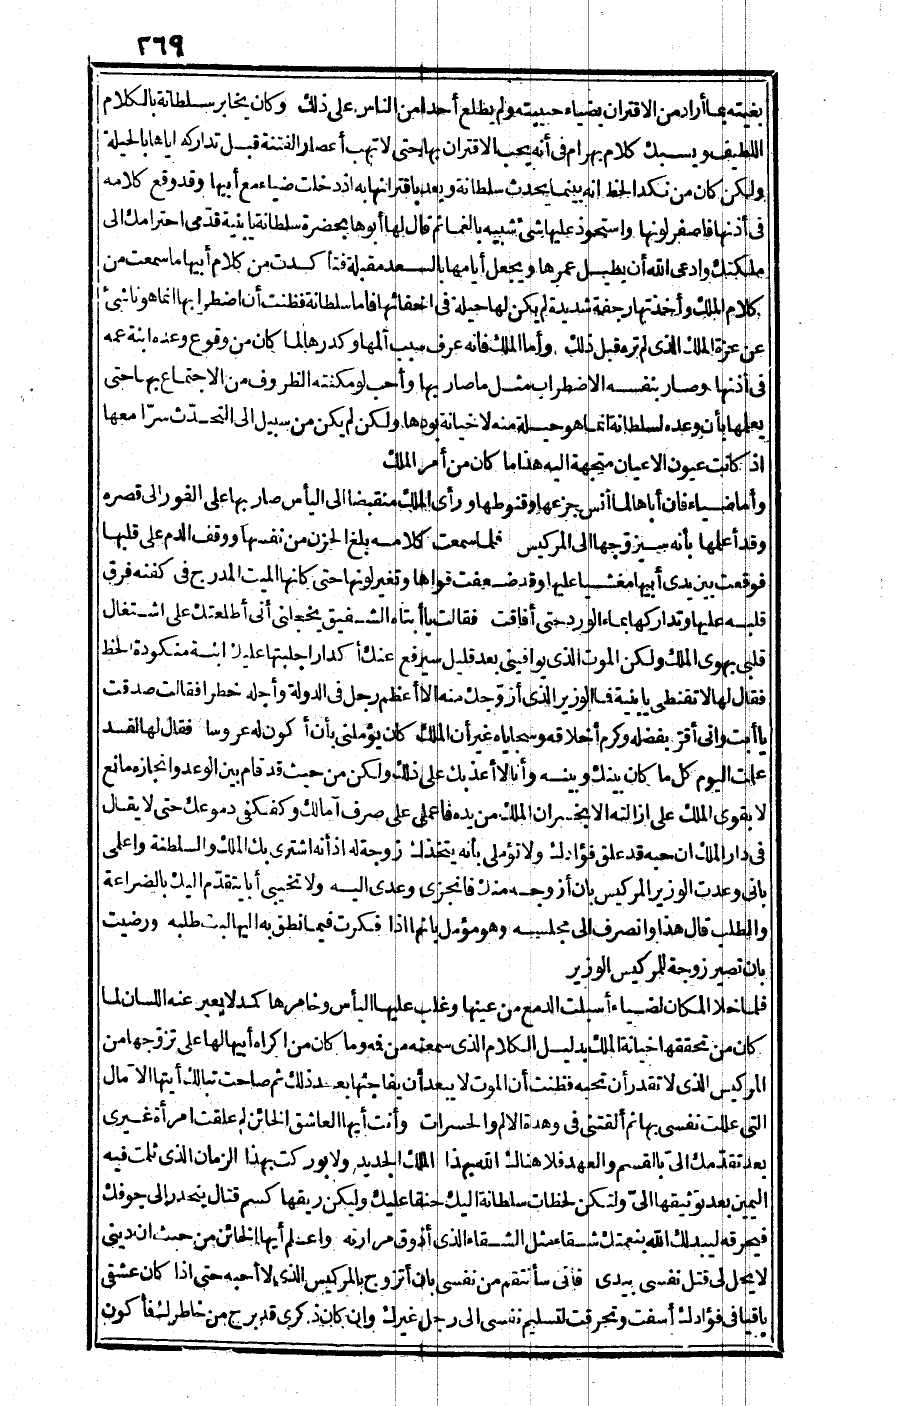 ٢٦٩
بغيته بما أراد من الاقتران بضياء حبيبته ولم يطلع أحدا من الناس على ذلك وكان يخابر سلطانة بالكلام
اللطيف ويسبك كلام بهرام في أنه يحب الاقتران بها حتى لا تهب أعصار الفتنة قبل تداركه اياها بالحيلة
ولكن كان من نكد الحظ انه بينما يحدث سلطانة ويعد باقترانها به اذ دخلت ضياء مع أبيها وقد وقع كلامه
في أذنها فاصفر لونها واستحوذ عليها شئ شبيه بالغماء ثم قال لها أبوها بحضرة سلطانة يا بنية قدمي احترامك الى
ملكتك وادعي الله أن يطيل عمرها ويجعل أيامها بالسعد مقبلة فتأكدت من كلام أبيها ما سمعت من
كلام الملك وأخذتها رجفة شديدة لم يكن لها حيلة في اخفائها فاما سلطانة فظنت أن اضطرابها انما هو ناشئ
عن عزة الملك الذى لم تره قبل ذلك وأما الملك فانه عرف سبب ألمها وكدرها لما كان من وقوع وعده ابنة عمه
في أذنها وصار بنفسه الاضطراب مثل ما صار بها وأحب لو مكنته الظروف من الاجتماع بها حتى
يعلمها بأن وعده لسلطانة انما هو حيلة منه لا خيانة بودها ولكن لم يكن من سبيل الى التحدّث سرّا معها
اذ كانت عيون الاعيان متجهة اليه هذا ما كان من أمر الملك
وأما ضياء فان أباها لما آنس جزعها وقنوطها ورأى الملك منقبضا الى اليأس صار بها على الفور الى قصره
وقد أعلمها بأنه سيزوجها الى المركيس فلما سمعت كلامه بلغ الحزن من نفسها ووقف الدم على قلبها
فوقعت بين يدى أبيها مغشيا عليها وقد ضعفت قواها وتغير لونها حتى كأنها الميت المدرج في كفنه فرق
قلبه عليها وتداركها بماء الورد حتى أفاقت فقالت يا أبتاه الشفيق يخجلني أني أطلعتك على اشتغال
قلبي بهوى الملك ولكن الموت الذى يوافيني بعد قليل سيرفع عنك أكدارا جلبتها عليك ابنة منكودة الحظ
فقال لها لا تقنطى يا بنية فما الوزير الذى أزوجك منه الا أعظم رجل في الدولة وأجله خطرا فقالت صدقت
يا أبت واني أقرّ بفضله وكرم أخلاقه وسجاياه غير أن الملك كان يؤملني بأن أكون له عروسا فقال لها لقد
علمت اليوم كل ما كان بينك وبينه وأنا لا أعذبك على ذلك ولكن من حيث قد قام بين الوعد وانجازه مانع
لا يقوى الملك على ازالته الا بخسران الملك من يده فاعملي على صرف آمالك وكفكفي دموعك حتى لا يقال
في دار الملك ان حبه قد علق فؤادك ولا تؤملي بأنه يتخذك زوجة له اذ أنه اشترى بك الملك والسلطنة واعلمي
باني وعدت الوزير المركيس بان أزوجه منك فانجزى وعدى اليه ولا تخيبي أبا يتقدّم اليك بالضراعة
والطلب قال هذا وانصرف الى مجلسه وهو مؤمل بانها اذا فكرت فيما نطق به اليها لبت طلبه ورضيت
بان تصير زوجة للمركيس الوزير
فلما خلا المكان لضياء أسبلت الدمع من عينها وغلب عليها اليأس وخامرها كمد لا يعبر عنه اللسان لما
كان من تحققها خيانة الملك بدليل الكلام الذى سمعته من فمه وما كان من اكراه أبيها لها على تزوجها من
المركيس الذى لا تقدر أن تحبه فظنت أن الموت لا يبعد أن يفاجئها بعد ذلك ثم صاحت تبا لك أيتها الآمال
التي عللت نفسي بها ثم ألقتني في وهدة الالم والحسرات وأنت أيها العاشق الخائن لم علقت امرأة غيرى
بعد تقدّمك الىّ بالقسم والعهد فلا هناك الله بهذا الملك الجديد ولا بوركت بهذا الزمان الذى ثلمت فيه
اليمين بعد توثيقها الىّ ولتكن لحظات سلطانة اليك حنقا عليك وليكن ريقها كسم قتال ينحدر الى جوفك
فيحرقه ليبدلك الله بنعمتك شقاء مثل الشقاء الذى أذوق مرارته واعلم أيها الخائن من حيث ان ديني
لا يحل لى قتل نفسي بيدى فاني سأنتقم من نفسي بان أتزوج بالمركيس الذى لا أحبه حتى اذا كان عشقي
باقيا في فؤادك أسفت وتحرقت لتسليم نفسي الى رجل غيرك وان كان ذكرى قد برح من خاطرك فأكون